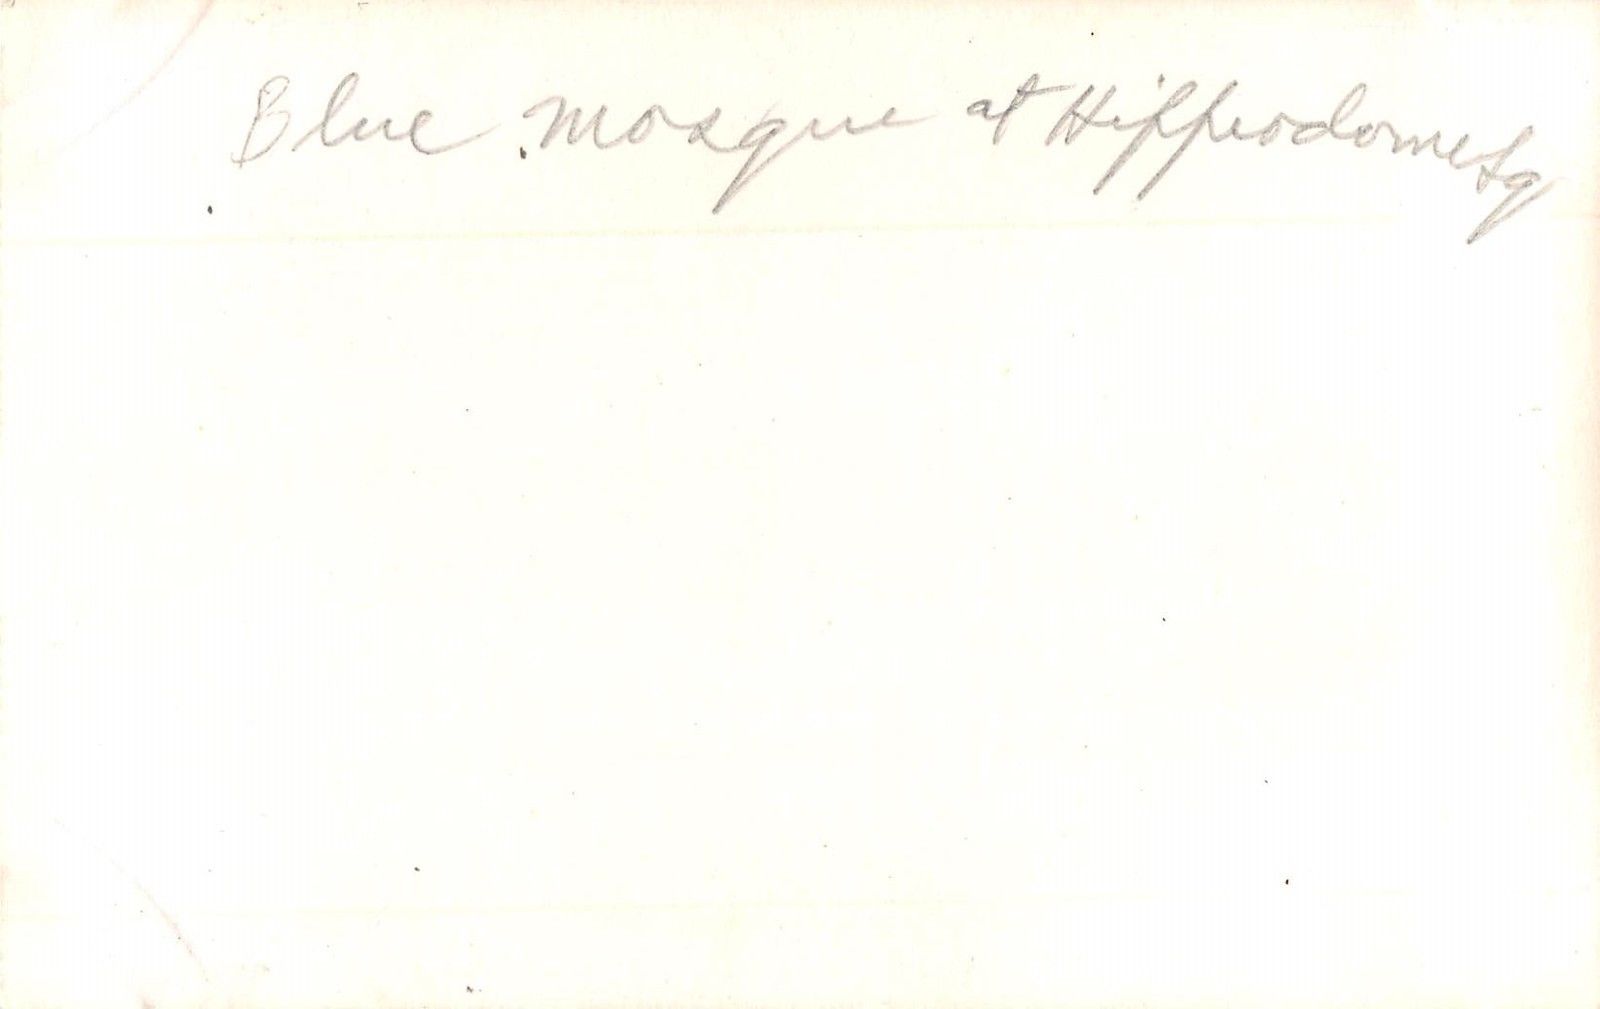 Blue Mosque at Hippodome Sq